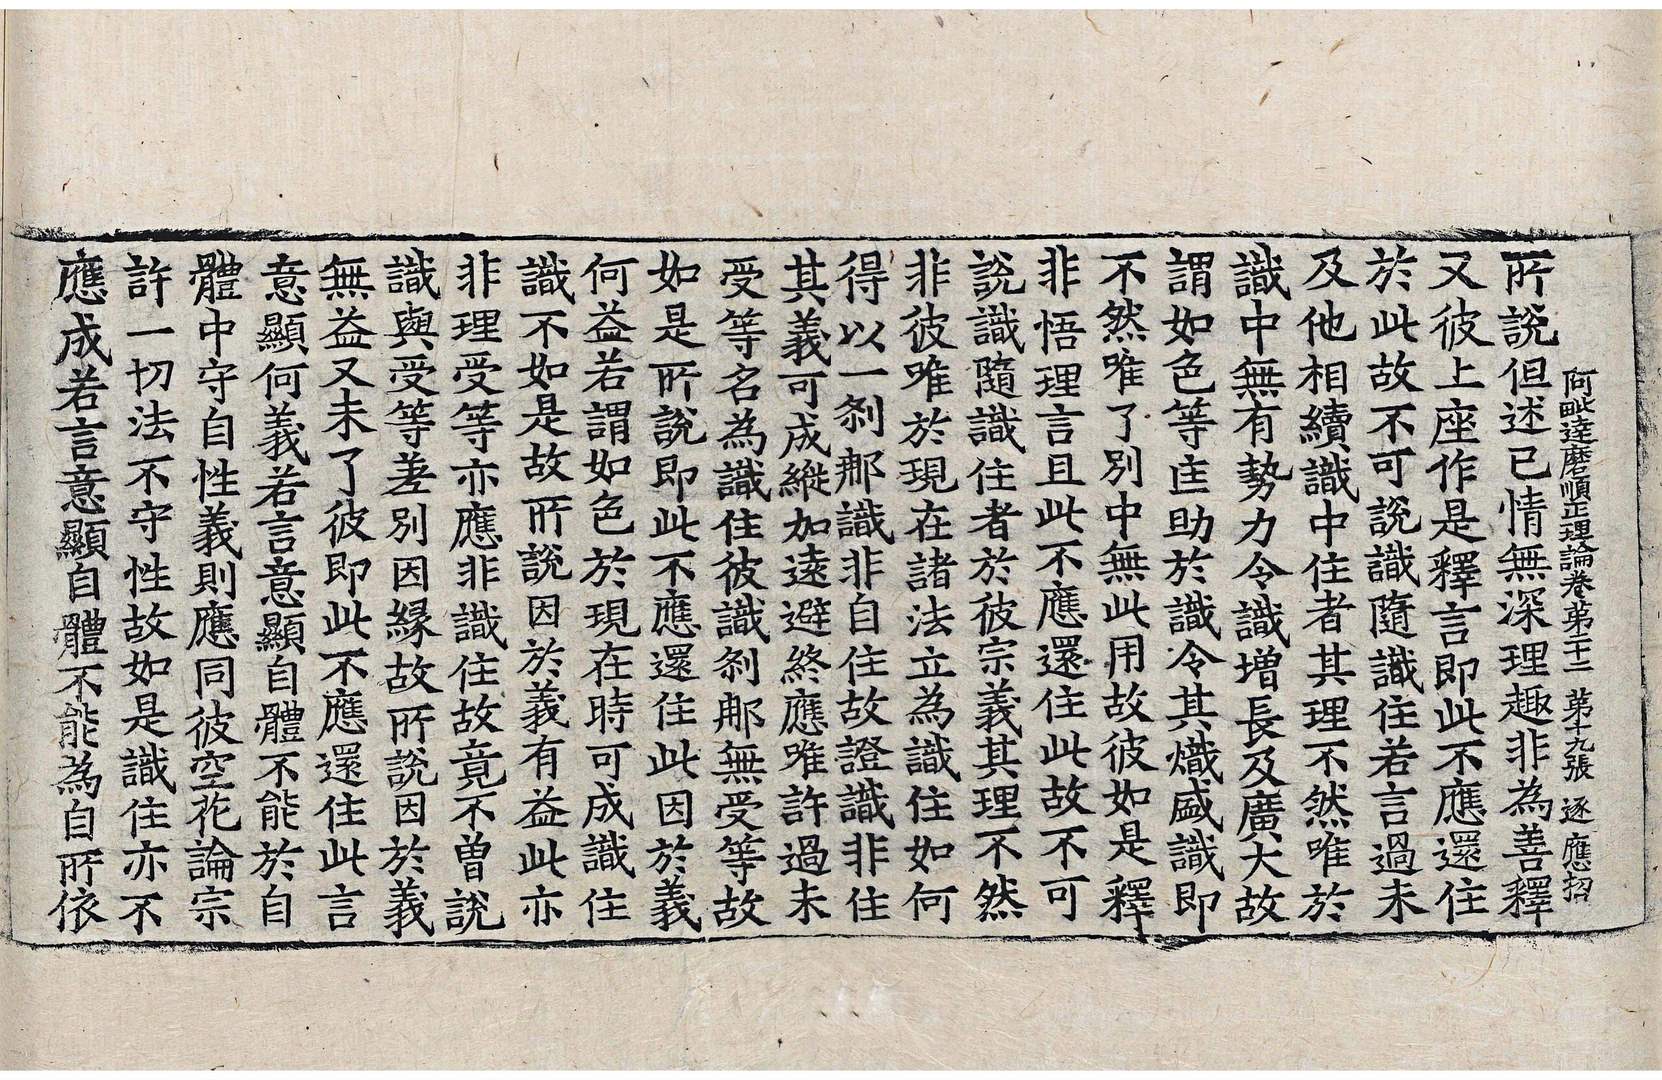 阿毗達磨順正理論卷第二十二 第十九張 逐 應招
所說但述已情無深理趣非為善釋
又彼上座作是釋言即此不應還住
於此故不可說識隨識住若言過未
及他相續識中住者其理不然唯於
識中無有勢力令識增長及廣大故
謂如色等匡助於識令其熾盛識即
不然唯了別中無此用故彼如是釋
非悟理言且此不應還住此故不可
說識隨識住者於彼宗義其理不然
非彼唯於現在諸法立為識住如何
得以一剎那識非自住故證識非住
其義可成縱加遠避終應唯許過未
受等名為識住彼識剎那無受等故
如是所說即此不應還住此因於義
何益若謂如色於現在時可成識住
識不如是故所說因於義有益此亦
非理受等亦應非識住故竟不曾說
識與受等差別因緣故所說因於義
無益又未了彼即此不應還住此言
意顯何義若言意顯自體不能於自
體中守自性義則應同彼空花論宗
許一切法不守性故如是識住亦不
應成若言意顯自體不能為自所依